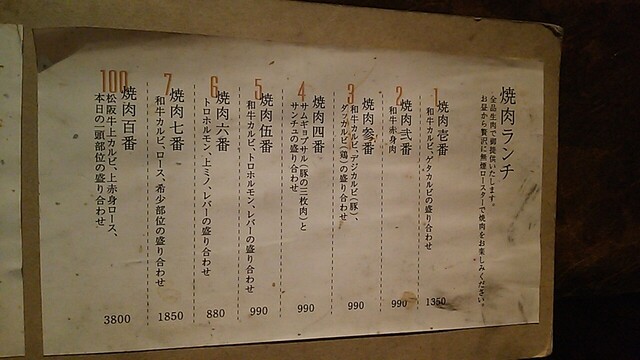 焼肉ランチ
全品生肉で御提供いたします。
お昼から贅沢に無煙ロースターで焼肉をお楽しみください。
1
焼肉壱番
和牛カルビ、ゲタカルビの盛り合わせ
1350
2
焼肉弐番
和牛赤身肉
990
3
焼肉参番
和牛カルビ、デジカルビ(豚)、
ダッカルビ(鶏)の盛り合わせ
990
4
焼肉四番
サムギョプサル(豚の三枚肉)と
サンチュの盛り合わせ
990
5
焼肉伍番
和牛カルビ、トロホルモン、レバーの盛り合わせ
990
6
焼肉六番
トロホルモン、上ミノ、レバーの盛り合わせ
880
7
焼肉七番
和牛カルビ、ロース、希少部位の盛り合わせ
1850
100
焼肉百番
松阪牛上カルビ、上赤身ロース、
本日の一頭部位の盛り合わせ
3800